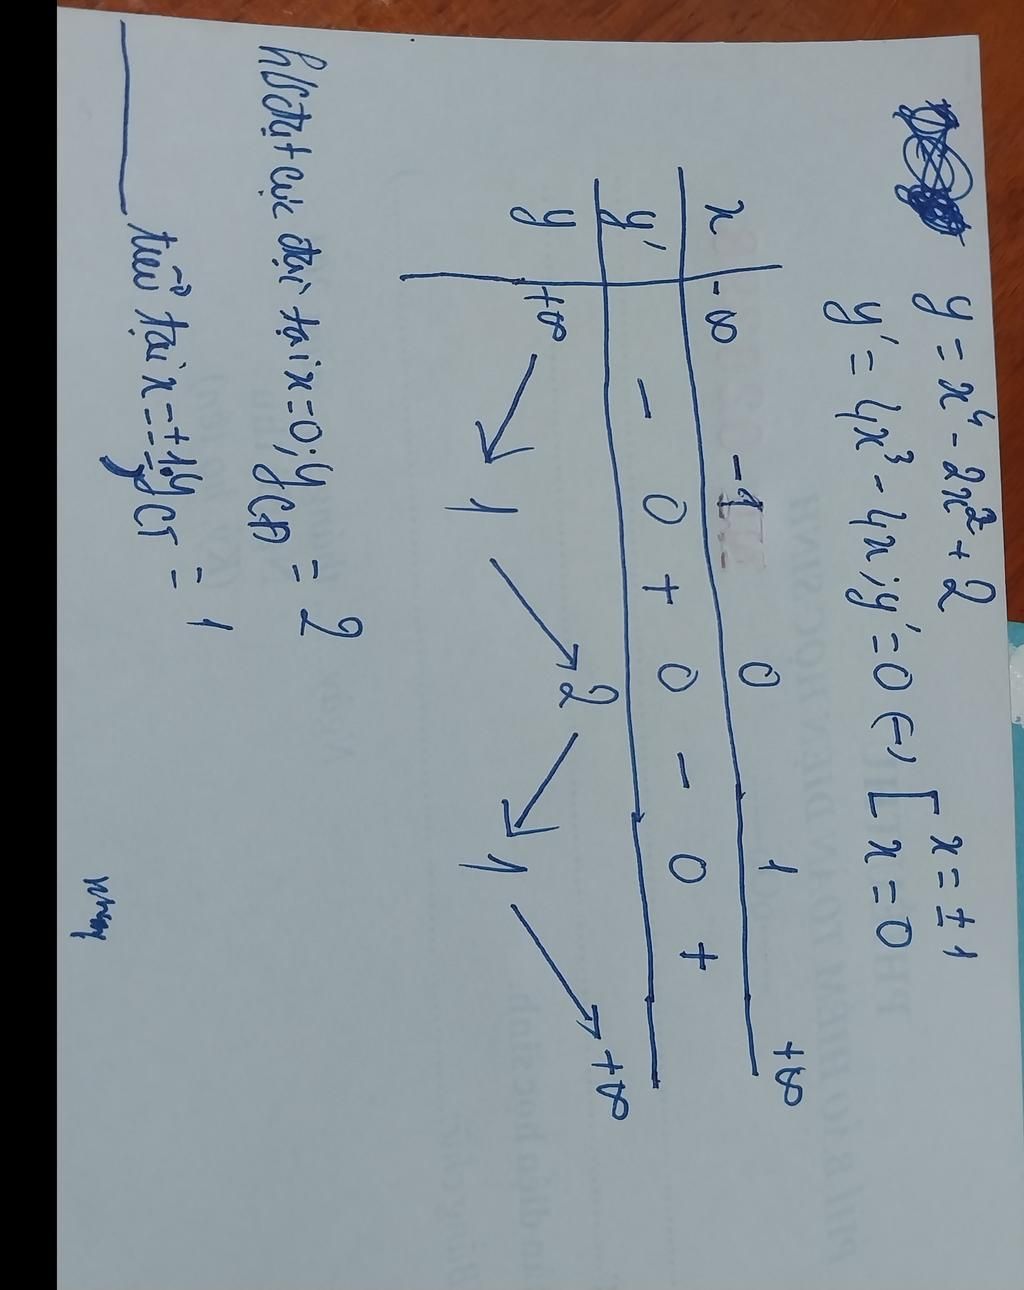 y = x⁴ - 2x² + 2
y' = 4x³ - 4x; y' = 0 ⇔ [ x = ± 1
x = 0
x -∞ -1 0 1 +∞
y' - 0 + 0 - 0 +
y +∞ ↘ 1 ↗ 2 ↘ 1 ↗ +∞
h/s đạt cực đại tại x = 0; yCĐ = 2
tiểu tại x = ±1; yCT = 1